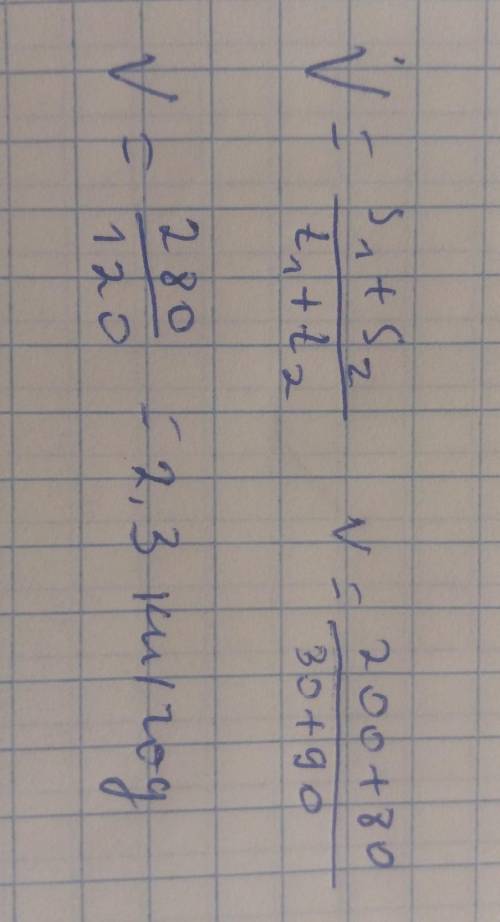 V = (s₁ + s₂)/(t₁ + t₂) V = (200 + 80)/(30 + 90)
V = 280/120 = 2,3 км/год